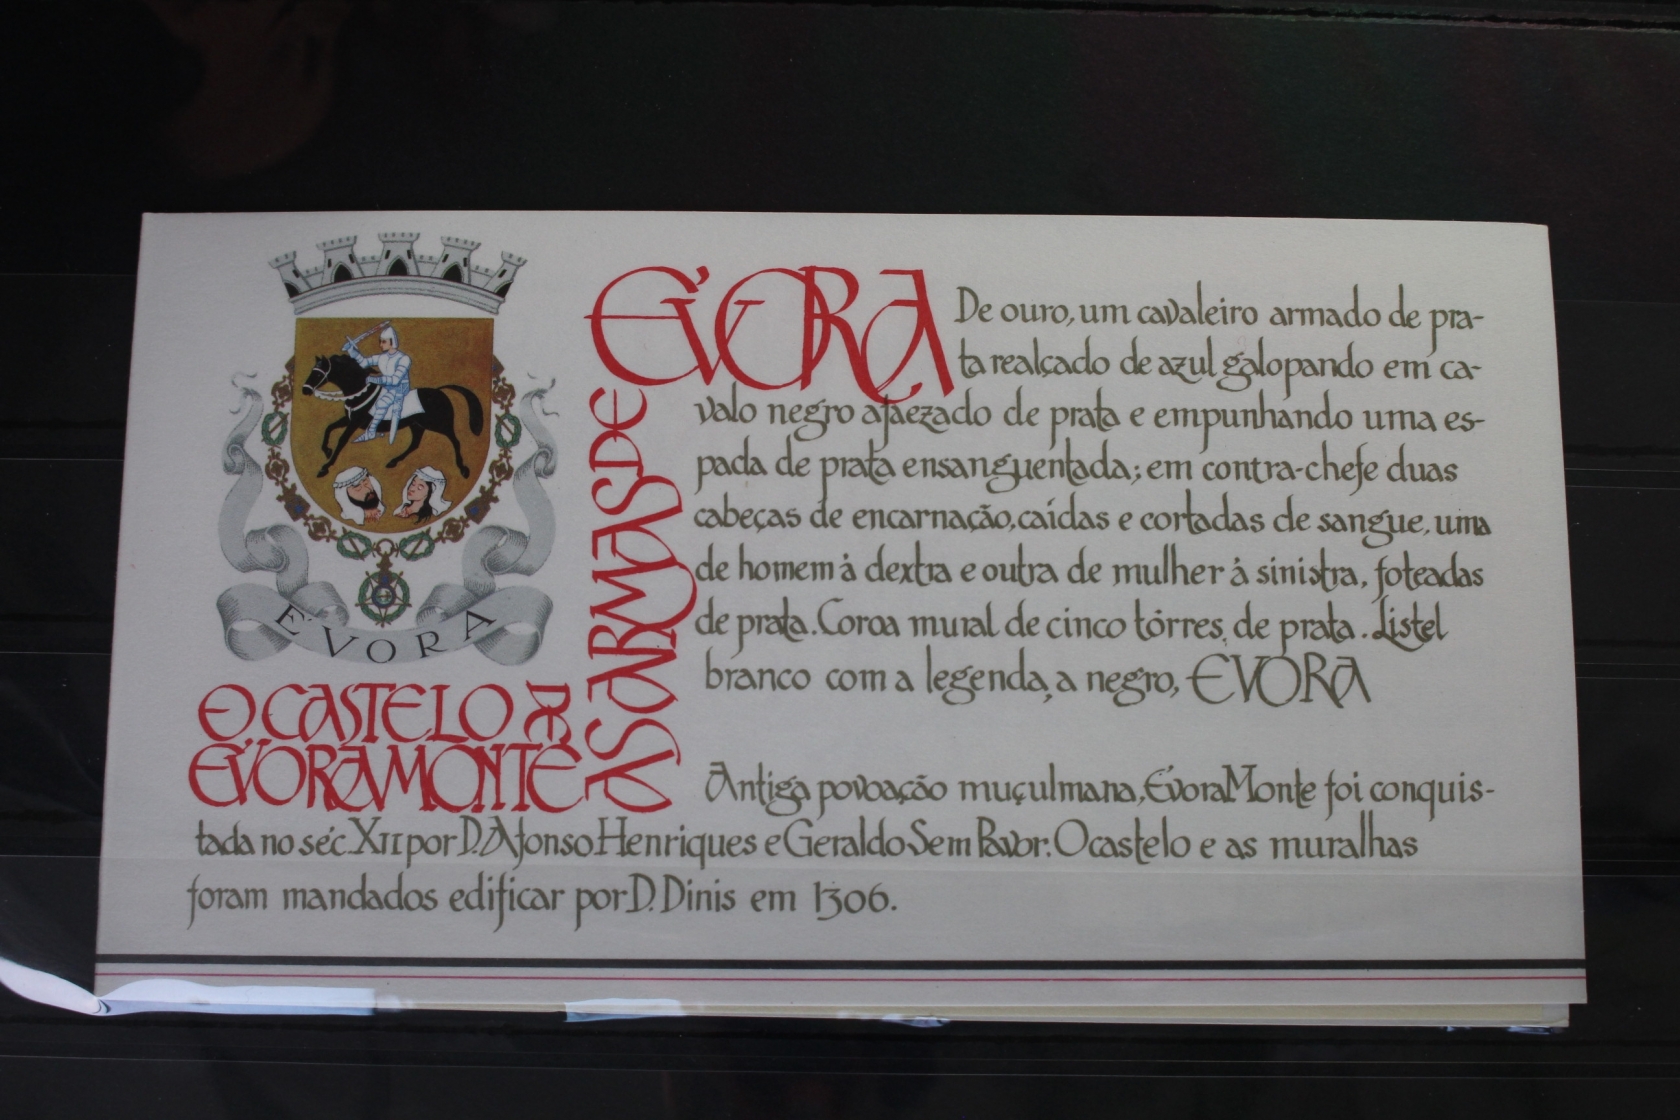 ÉVORA
AS ARMAS DE ÉVORA
De ouro, um cavaleiro armado de pra-
ta realçado de azul galopando em ca-
valo negro ajaezado de prata e empunhando uma es-
pada de prata ensanguentada; em contra-chefe duas
cabeças de encarnação, caídas e cortadas de sangue, uma
de homem à dextra e outra de mulher à sinistra, foteadas
de prata. Coroa mural de cinco tôrres, de prata. Listel
branco com a legenda, a negro, EVORA
O CASTELO DE
ÉVORAMONTE
Antiga povoação muçulmana, ÉvoraMonte foi conquis-
tada no séc. XII por D. Afonso Henriques e Geraldo Sem Pavor. O castelo e as muralhas
foram mandados edificar por D. Dinis em 1306.